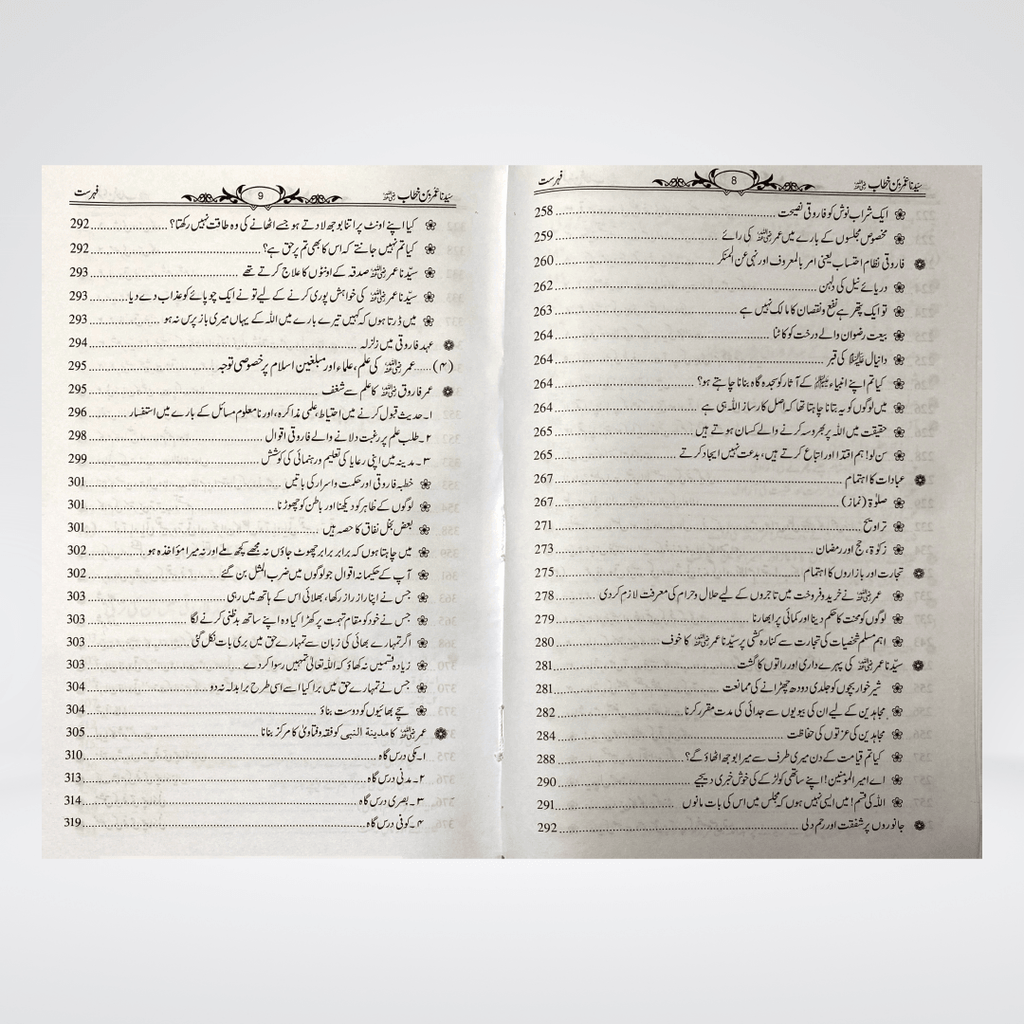 سیّدنا عمر بن خطاب رضی اللہ عنہ 8 فہرست
ایک شراب نوش کو فاروقی نصیحت ... 258
مخصوص مجلسوں کے بارے میں عمر رضی اللہ عنہ کی رائے ... 259
فاروقی نظام احتساب یعنی امر بالمعروف اور نہی عن المنکر ... 260
دریائے نیل کی دلہن ... 262
تو ایک پتھر ہے نفع و نقصان کا مالک نہیں ہے ... 263
بیعت رضوان والے درخت کو کاٹنا ... 264
دانیال علیہ السلام کی قبر ... 264
کیا تم اپنے انبیاء علیہم السلام کے آثار کو سجدہ گاہ بنانا چاہتے ہو؟ ... 264
میں لوگوں کو یہ بتانا چاہتا تھا کہ اصل کارساز اللہ ہی ہے ... 264
حقیقت میں اللہ پر بھروسہ کرنے والے کسان ہوتے ہیں ... 265
سن لو! ہم اقتدا اور اتباع کرتے ہیں، بدعت نہیں ایجاد کرتے ... 265
عبادات کا اہتمام ... 267
صلوٰۃ (نماز) ... 267
تراویح ... 271
زکوٰۃ، حج اور رمضان ... 273
تجارت اور بازاروں کا اہتمام ... 275
عمر رضی اللہ عنہ نے خرید و فروخت میں تاجروں کے لیے حلال و حرام کی معرفت لازم کر دی ... 278
لوگوں کو محنت کا حکم دینا اور کمائی پر ابھارنا ... 279
اہم مسلم شخصیات کی تجارت سے کنارہ کشی پر سیّدنا عمر رضی اللہ عنہ کا خوف ... 280
سیّدنا عمر رضی اللہ عنہ کی پہرے داری اور راتوں کا گشت ... 281
شیر خوار بچوں کو جلدی دودھ چھڑانے کی ممانعت ... 281
مجاہدین کے لیے ان کی بیویوں سے جدائی کی مدت مقرر کرنا ... 282
مجاہدین کی عزتوں کی حفاظت ... 284
کیا تم قیامت کے دن میری طرف سے میرا بوجھ اٹھاؤ گے؟ ... 288
اے امیر المؤمنین! اپنے ساتھی کو لڑکے کی خوش خبری دیجیے ... 290
اللہ کی قسم! میں ایسی نہیں ہوں کہ مجلس میں اس کی بات مانوں ... 291
جانوروں پر شفقت اور رحم دلی ... 292
سیّدنا عمر بن خطاب رضی اللہ عنہ 9 فہرست
کیا اپنے اونٹ پر اتنا بوجھ لادتے ہو جسے اٹھانے کی وہ طاقت نہیں رکھتا؟ ... 292
کیا تم نہیں جانتے کہ اس کا بھی تم پر حق ہے؟ ... 292
سیّدنا عمر رضی اللہ عنہ صدقہ کے اونٹوں کا علاج کرتے تھے ... 293
سیّدنا عمر رضی اللہ عنہ کی خواہش پوری کرنے کے لیے تو نے ایک چوپائے کو عذاب دے دیا ... 293
میں ڈرتا ہوں کہ کہیں تیرے بارے میں اللہ کے یہاں میری باز پرس نہ ہو ... 293
عہد فاروقی میں زلزلہ ... 294
(۴) .... عمر رضی اللہ عنہ کی علم، علماء اور مبلغین اسلام پر خصوصی توجہ ... 295
عمر فاروق رضی اللہ عنہ کا علم سے شغف ... 295
۱۔ حدیث قبول کرنے میں احتیاط، علمی مذاکرہ، اور نامعلوم مسائل کے بارے میں استفسار ... 296
۲۔ طلب علم پر رغبت دلانے والے فاروقی اقوال ... 298
۳۔ مدینہ میں اپنی رعایا کی تعلیم و رہنمائی کی کوشش ... 299
خطبہ فاروقی اور حکمت و اسرار کی باتیں ... 301
لوگوں کے ظاہر کو دیکھنا اور باطن کو چھوڑنا ... 301
بعض بخل نفاق کا حصہ ہیں ... 301
میں چاہتا ہوں کہ برابر برابر چھوٹ جاؤں نہ مجھے کچھ ملے اور نہ میرا مؤاخذہ ہو ... 302
آپ کے حکیمانہ اقوال جو لوگوں میں ضرب المثل بن گئے ... 302
جس نے اپنا راز راز رکھا، بھلائی اس کے ہاتھ میں رہی ... 303
جس نے خود کو مقام تہمت پر کھڑا کیا وہ اپنے ساتھ بدظنی کرنے لگا ... 303
اگر تمہارے بھائی کی زبان سے تمہارے حق میں بری بات نکل گئی ... 303
زیادہ قسمیں نہ کھاؤ کہ اللہ تعالیٰ تمہیں رسوا کر دے ... 303
جس نے تمہارے حق میں برا کیا اسے اسی طرح برا بدلہ نہ دو ... 304
سچے بھائیوں کو دوست بناؤ ... 304
عمر رضی اللہ عنہ کا مدینۃ النبی کو فقہ و فتاویٰ کا مرکز بنانا ... 305
۱۔ مکی درس گاہ ... 310
۲۔ مدنی درس گاہ ... 313
۳۔ بصری درس گاہ ... 314
۴۔ کوفی درس گاہ ... 319